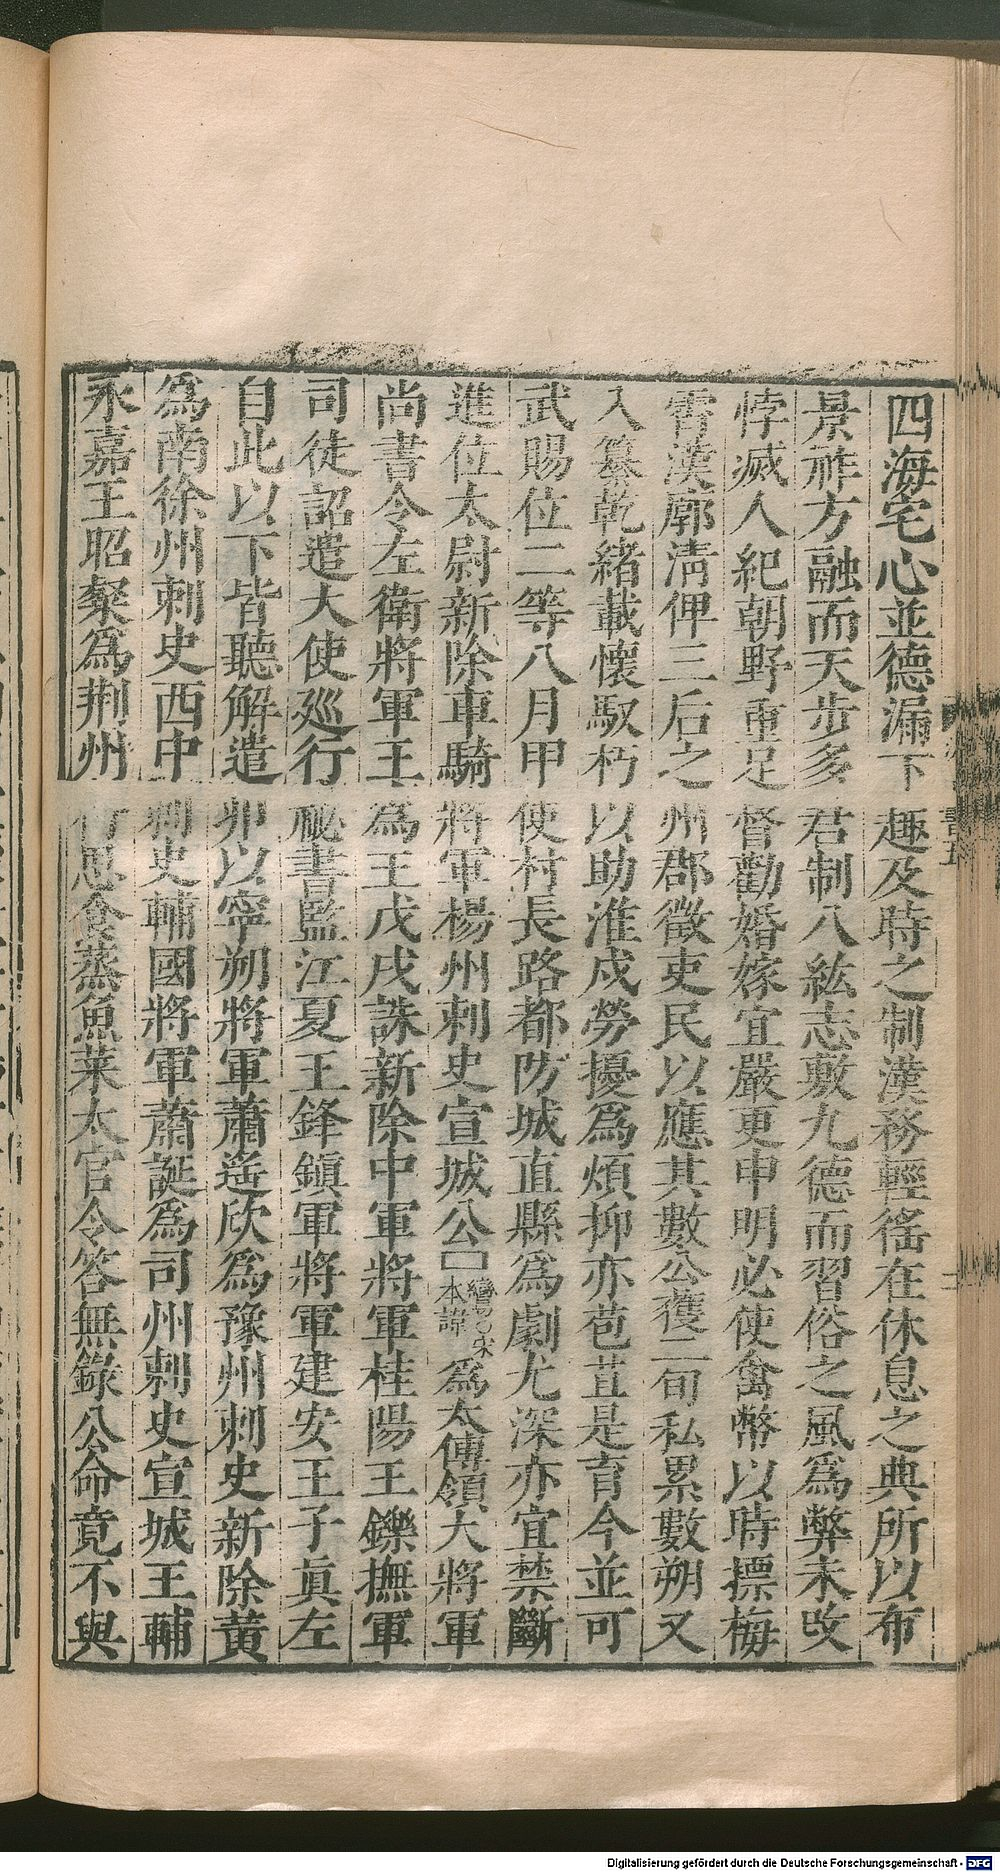 四海宅心並德漏下趣及時之制漢務輕徭在休息之典所以布
景祚方融而天步多君制八紘志敷九德而習俗之風爲弊未改
悖滅人紀朝野重足督勸婚嫁宜嚴更申明必使禽幣以時摽梅
霄漢廓清俾三后之州郡徵吏民以應其數公獲二旬私累數朔又
入纂乾緒載懷馭朽以助淮戍勞擾爲煩抑亦苞苴是育今並可
武賜位二等八月甲使村長路都防城直縣爲劇尤深亦宜禁斷
進位太尉新除車騎將軍楊州刺史宣城公□鸞易〇宋本諱爲太傅領大將軍
尚書令左衛將軍王爲王戊戌誅新除中軍將軍桂陽王鑠撫軍
司徒詔遣大使廵行秘書監江夏王鋒鎮軍將軍建安王子眞左
自此以下皆聽解遣卯以寧朔將軍蕭遙欣爲豫州刺史新除黃
爲南徐州刺史西中刺史輔國將軍蕭誕爲司州刺史宣城王輔
永嘉王昭粲爲荆州思食蒸魚菜太官令答無錄公命竟不與
Digitalisierung gefördert durch die Deutsche Forschungsgemeinschaft - DFG